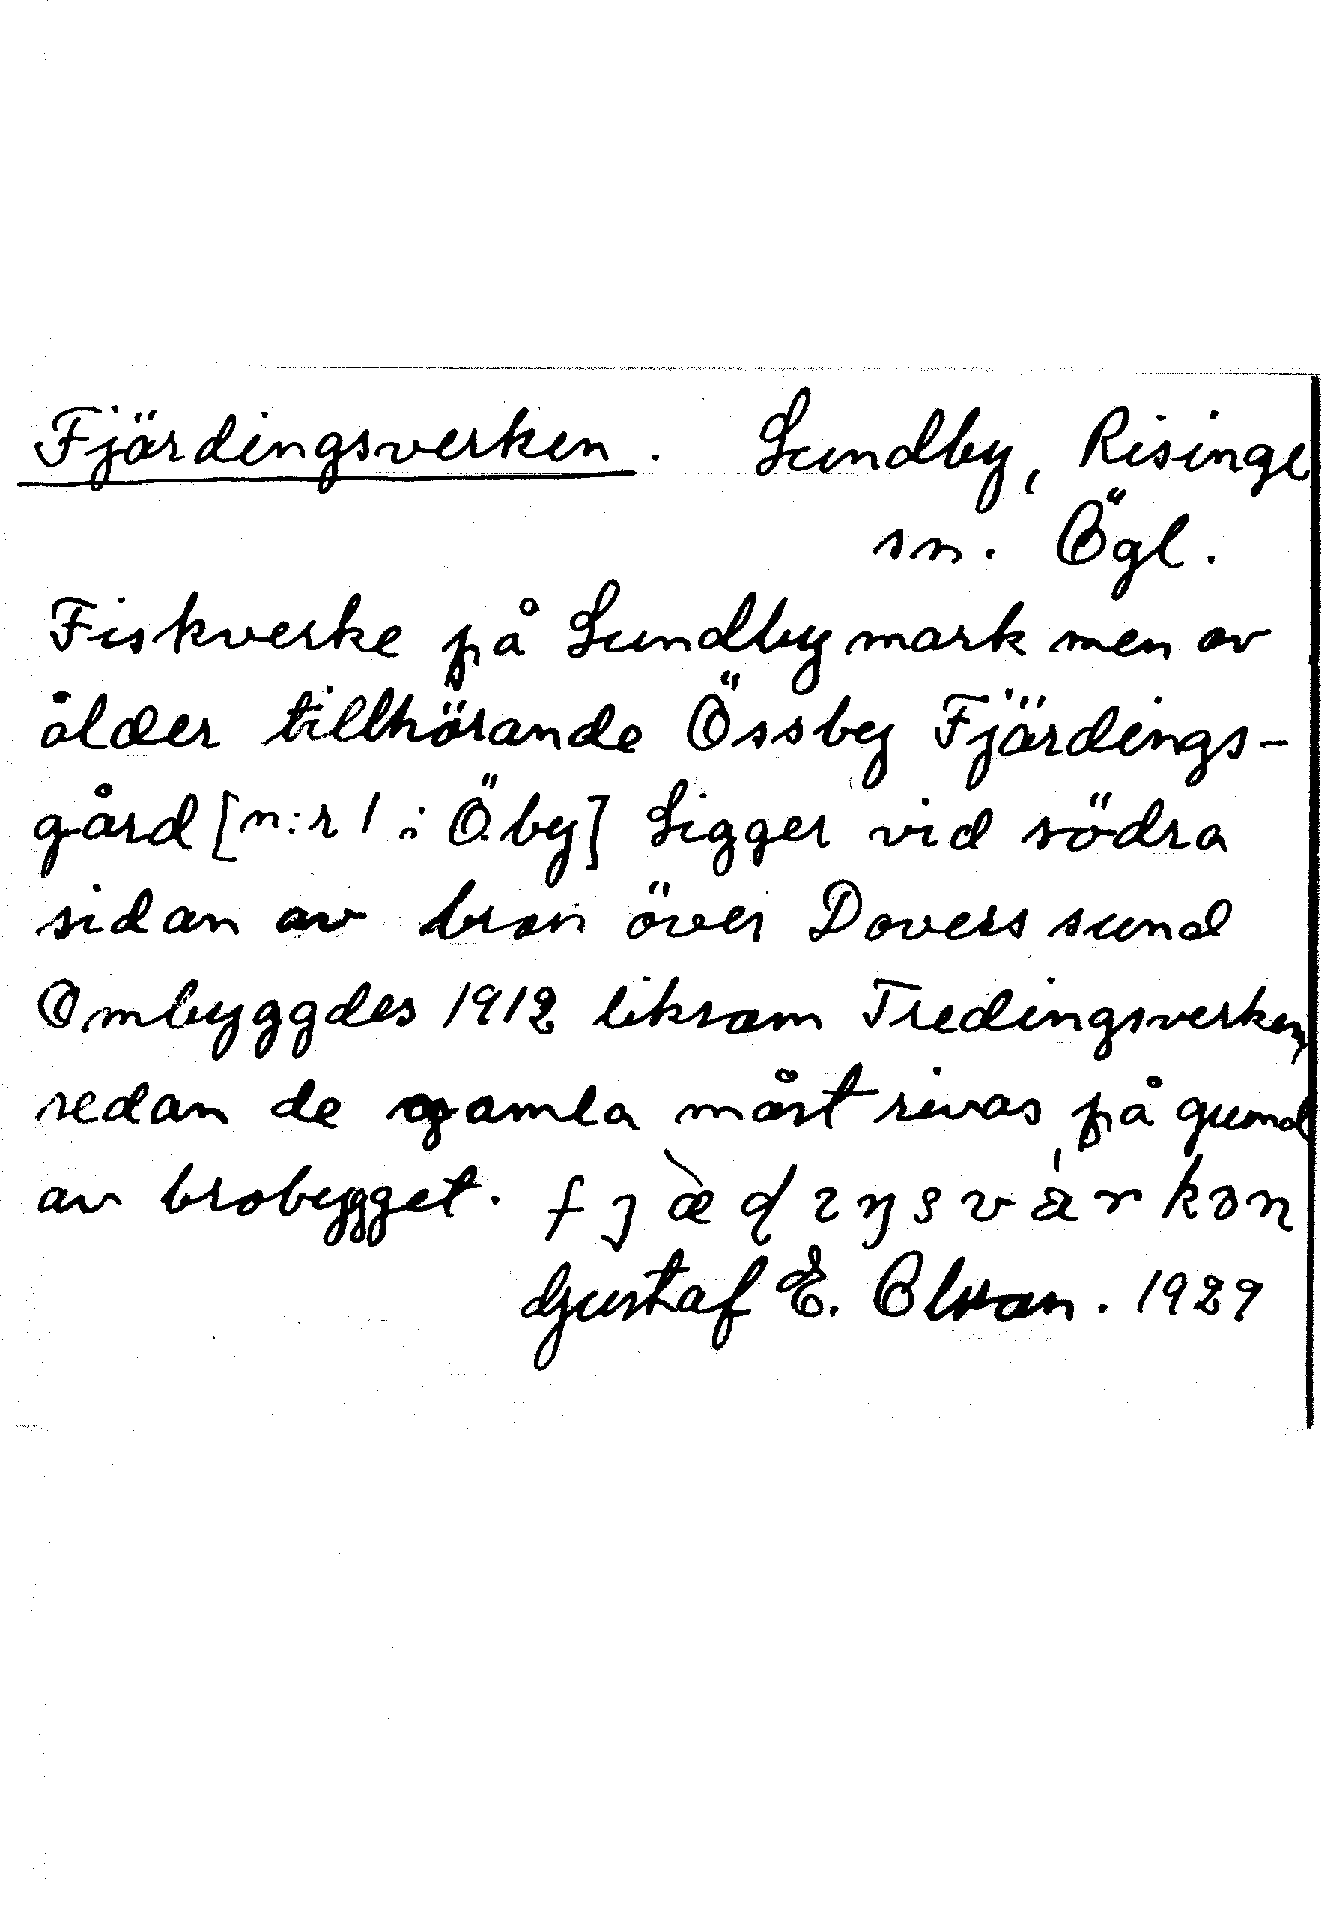 Fjärdingsverken. Lundby, Risinge
sn. Ögl.
Fiskverke på Lundby mark men av
ålder tillhörande Össby Fjärdings-
gård [n:r 1 i Ö.by] Ligger vid södra
sidan av bron över Dovers sund
Ombyggdes 1912 liksom Tredingsverken,
sedan de gamla måst rivas på gund
av brobygget.
Gustaf E. Olson. 1929